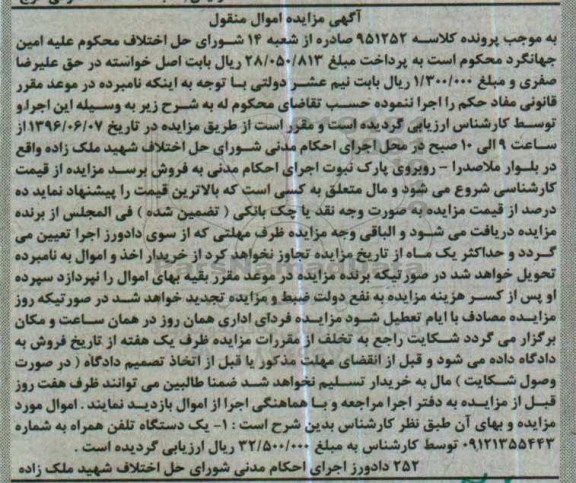 آگهی مزایده اموال منقول
به موجب پرونده کلاسه ۹۵۱۲۵۲ صادره از شعبه ۱۴ شورای حل اختلاف محکوم علیه امین
جهانگرد محکوم است به پرداخت مبلغ ۲۸/۰۵۰/۸۱۳ ریال بابت اصل خواسته در حق علیرضا
صفری و مبلغ ۱/۳۰۰/۰۰۰ ریال بابت نیم عشر دولتی با توجه به اینکه نامبرده در موعد مقرر
قانونی مفاد حکم را اجرا ننموده حسب تقاضای محکوم له به شرح زیر به وسیله این اجرا و
توسط کارشناس ارزیابی گردیده است و مقرر است از طریق مزایده در تاریخ ۱۳۹۶/۰۶/۰۷ از
ساعت ۹ الی ۱۰ صبح در محل اجرای احکام مدنی شورای حل اختلاف شهید ملک زاده واقع
در بلوار ملاصدرا - روبروی پارک نبوت اجرای احکام مدنی به فروش برسد مزایده از قیمت
کارشناسی شروع می شود و مال متعلق به کسی است که بالاترین قیمت را پیشنهاد نماید ده
درصد از قیمت مزایده به صورت وجه نقد یا چک بانکی ( تضمین شده ) فی المجلس از برنده
مزایده دریافت می شود و الباقی وجه مزایده ظرف مهلتی که از سوی دادورز اجرا تعیین می
گردد و حداکثر یک ماه از تاریخ مزایده تجاوز نخواهد کرد از خریدار اخذ و اموال به نامبرده
تحویل خواهد شد در صورتیکه برنده مزایده در موعد مقرر بقیه بهای اموال را نپردازد سپرده
او پس از کسر هزینه مزایده به نفع دولت ضبط و مزایده تجدید خواهد شد در صورتیکه روز
مزایده مصادف با ایام تعطیل شود مزایده فردای اداری همان روز در همان ساعت و مکان
برگزار می گردد شکایت راجع به تخلف از مقررات مزایده ظرف یک هفته از تاریخ فروش به
دادگاه داده می شود و قبل از انقضای مهلت مذکور یا قبل از اتخاذ تصمیم دادگاه ( در صورت
وصول شکایت ) مال به خریدار تسلیم نخواهد شد ضمنا طالبین می توانند ظرف هفت روز
قبل از مزایده به دفتر اجرا مراجعه و با هماهنگی اجرا از اموال بازدید نمایند . اموال مورد
مزایده و بهای آن طبق نظر کارشناس بدین شرح است : ۱- یک دستگاه تلفن همراه به شماره
۰۹۱۲۱۳۵۵۴۴۳ توسط کارشناس به مبلغ ۳۲/۵۰۰/۰۰۰ ریال ارزیابی گردیده است .
۲۵۲ دادورز اجرای احکام مدنی شورای حل اختلاف شهید ملک زاده